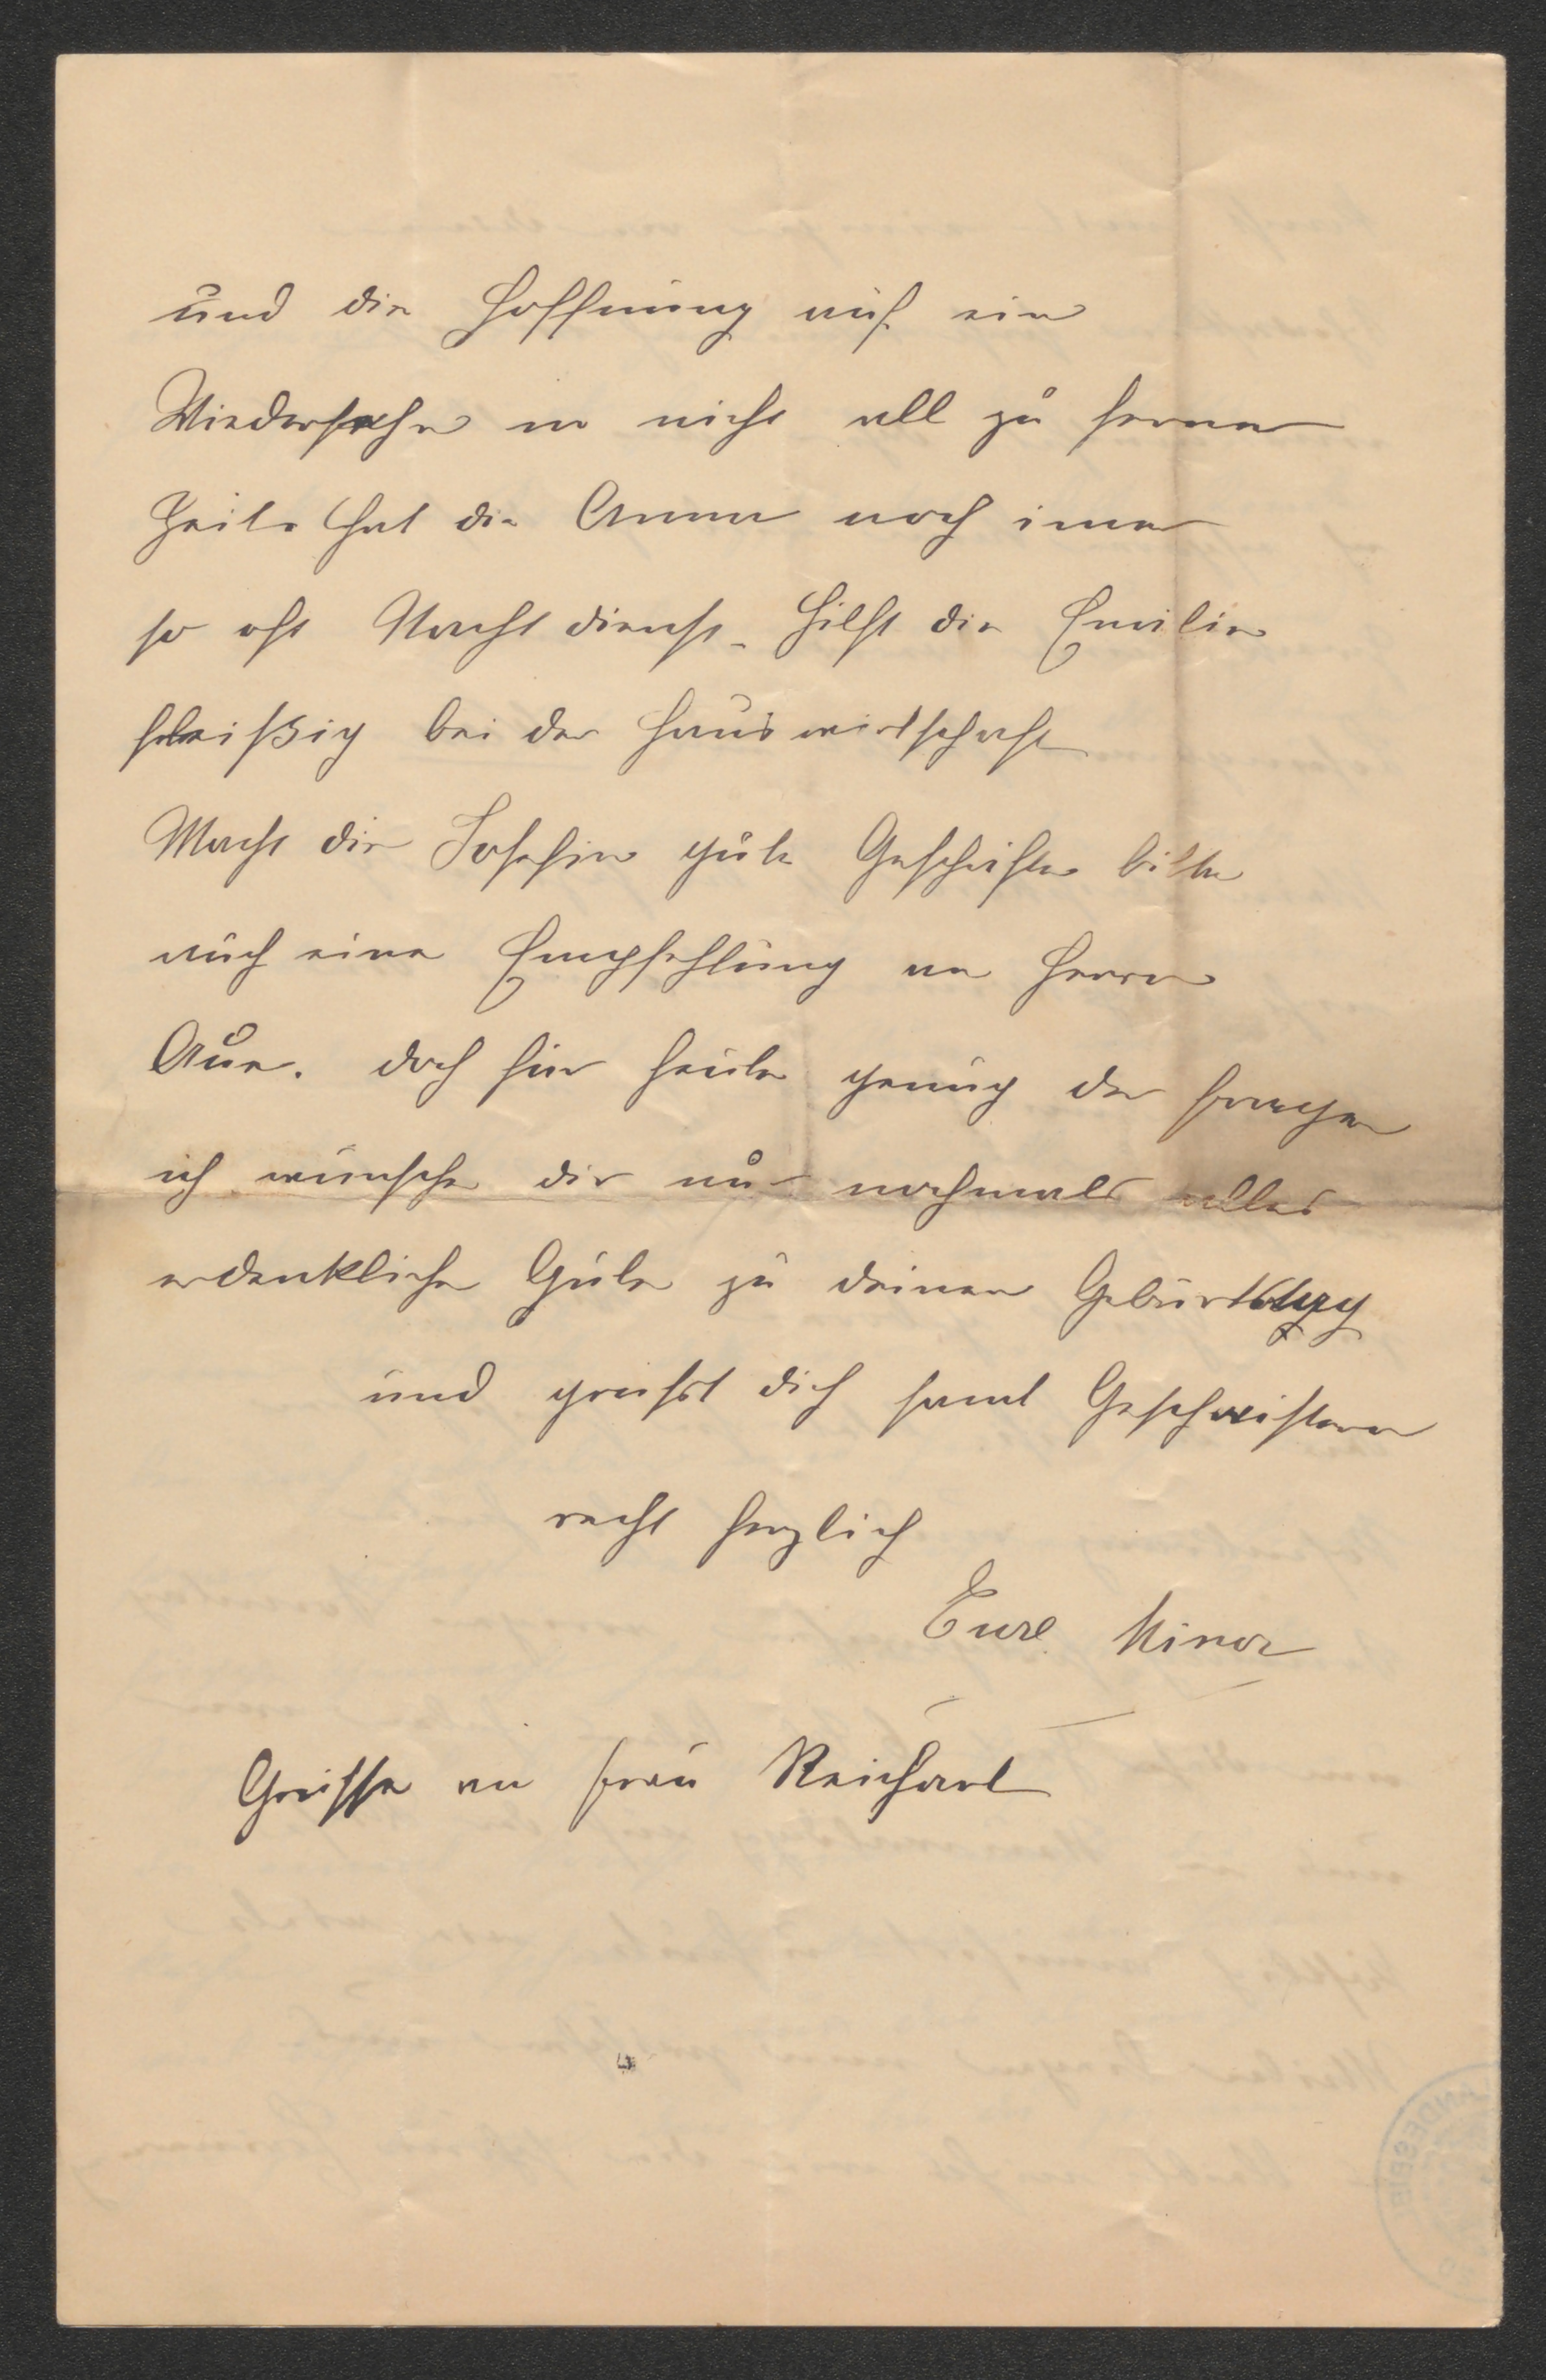 und die Hoffnung auf ein
Wiedersehn in nicht all zu ferner
Zeit. Hat die Anna noch imer
so oft Nachtdienst. Hilft die Emilie
fleißig bei der Hauswirtschaft
Macht die Josefin gute Geschäfte bitte
auch eine Empfehlung an Herrn
Aue. doch für heute genug der fragen
ich wünsche dir nur nochmals alles
erdenkliche Gute zu deinen Geburtstag
und grüsst dich samt Geschwistern
recht herzlich
Eure Minor
Grüsse an frau Reichart